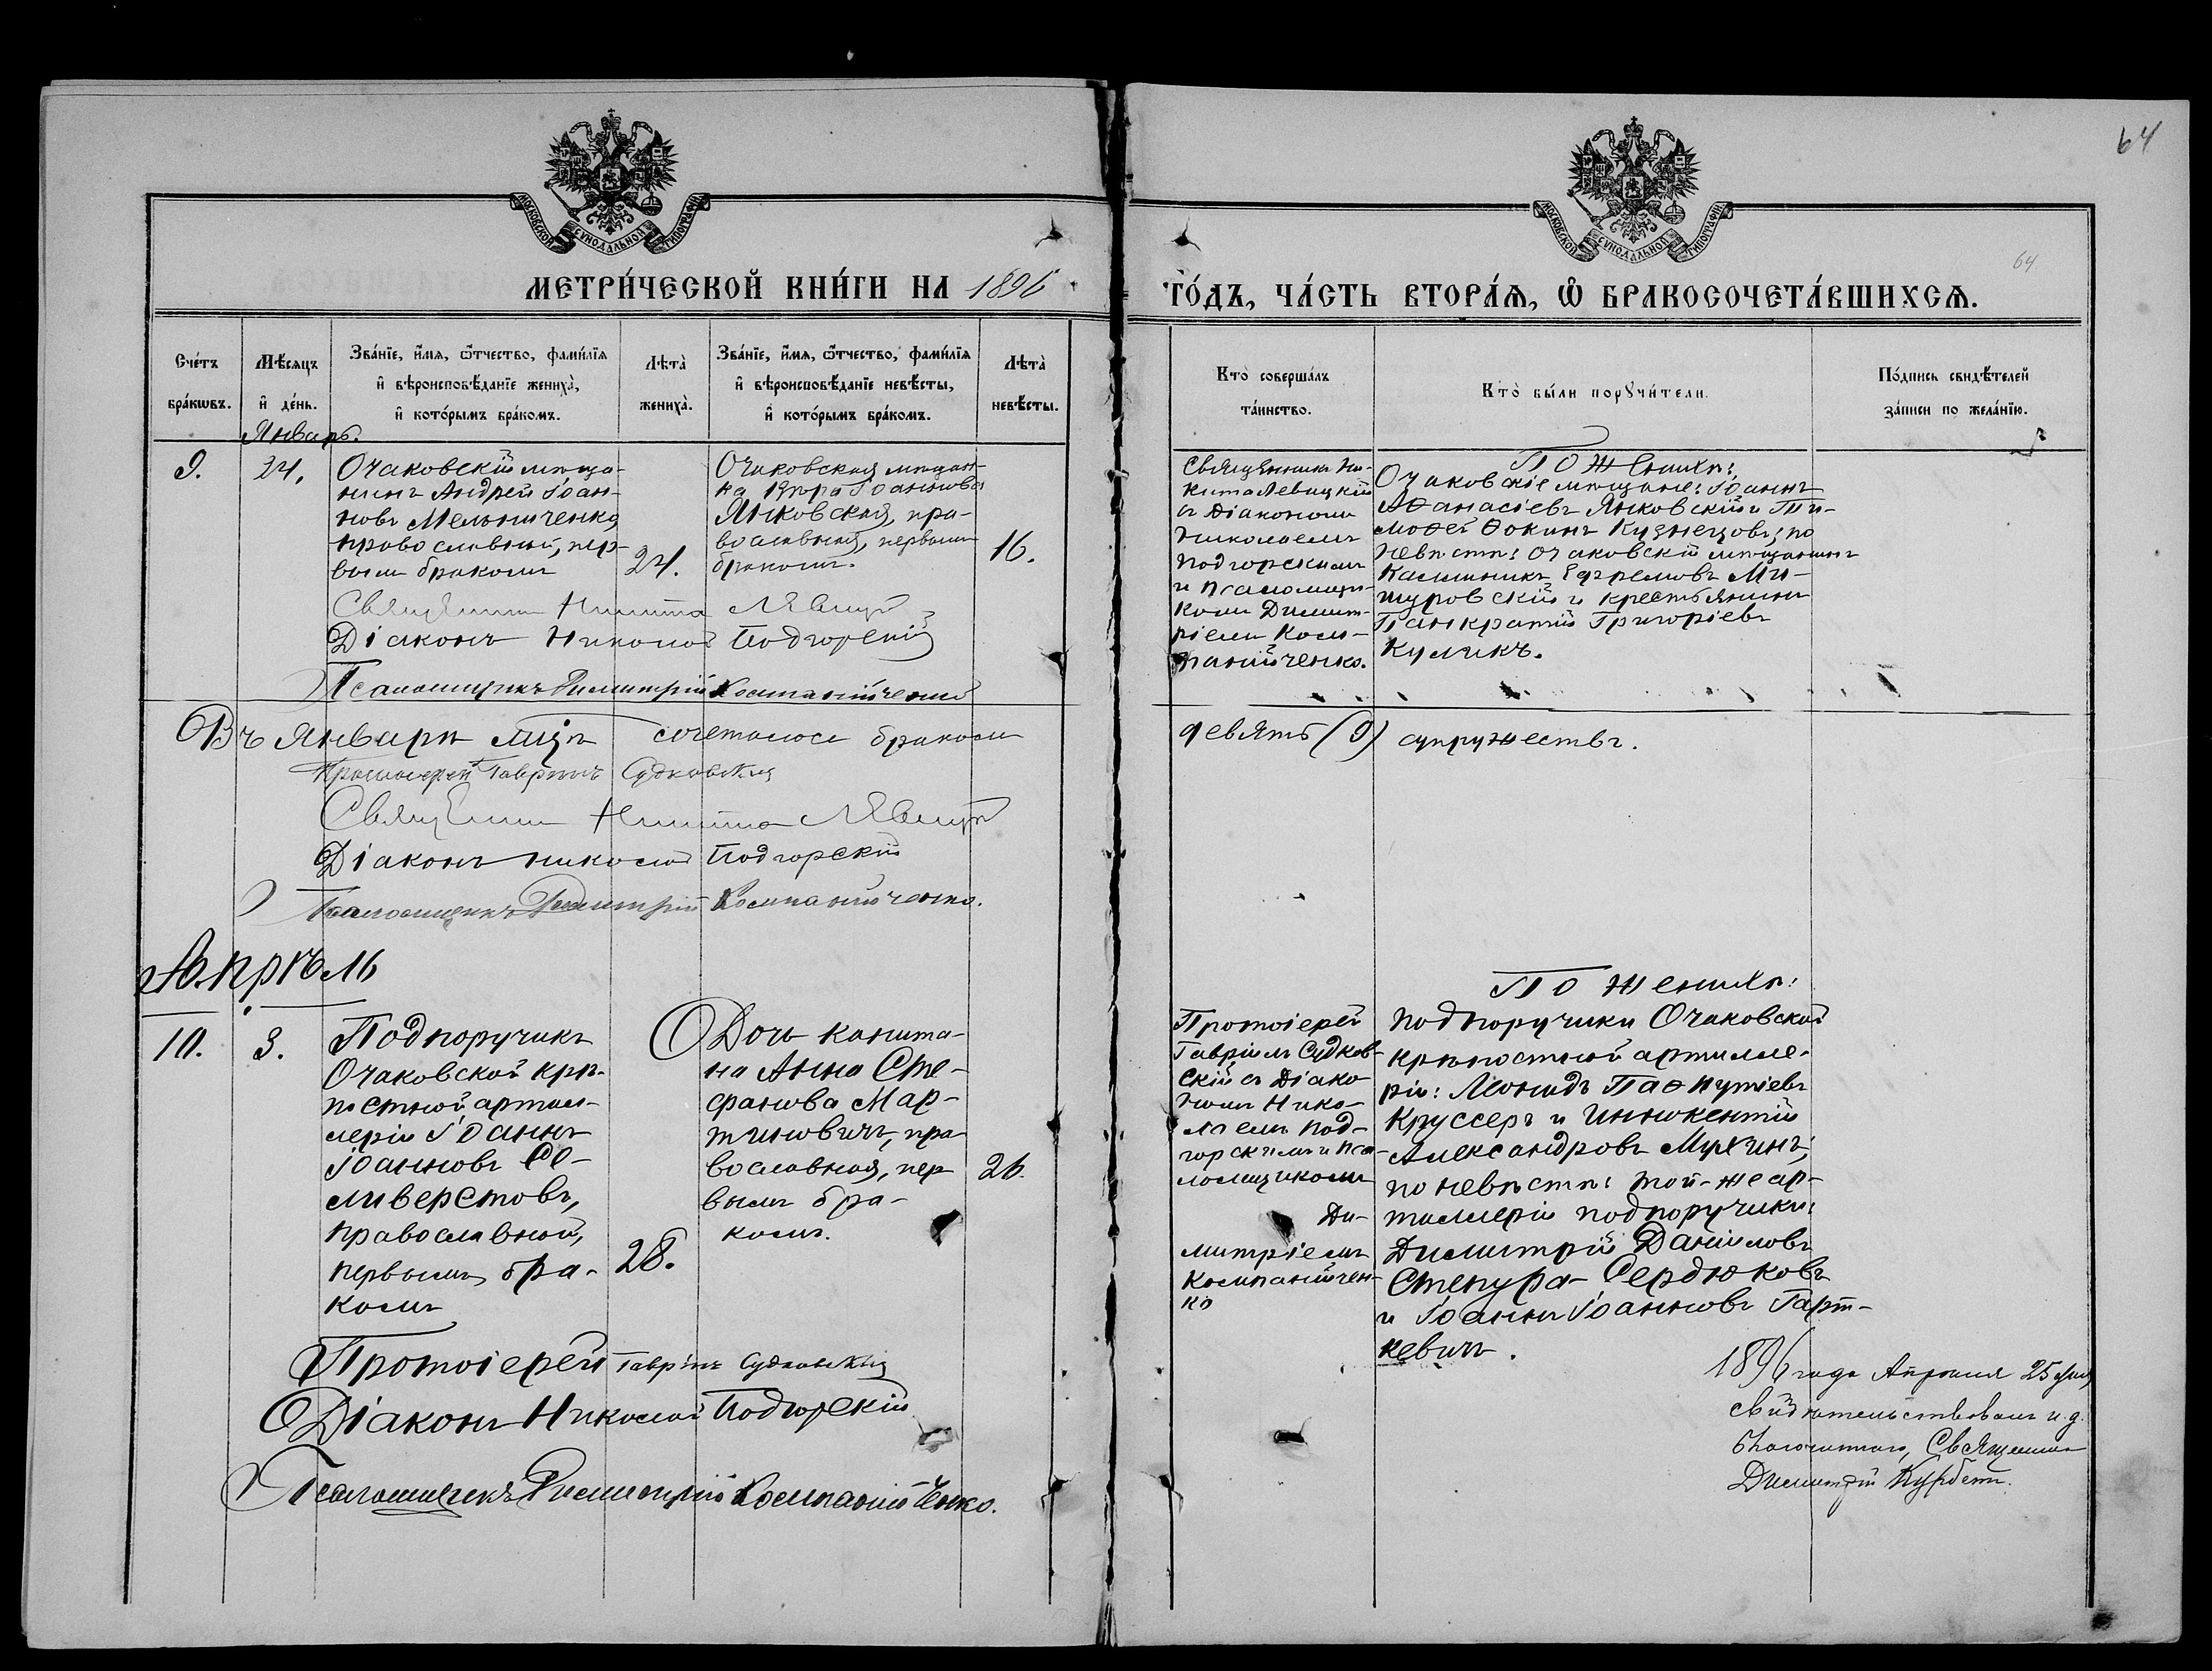 64
64
МОСКОВСКОЙ СУНОДАЛЬНОЙ ТИПОГРАФИИ
МОСКОВСКОЙ СУНОДАЛЬНОЙ ТИПОГРАФИИ
МЕТРИ́ЧЕСКОЙ КНИ́ГИ НА 1896
ГО́ДЪ, ЧА́СТЬ ВТОРА́Ѧ, Ѽ БРАКОСОЧЕТА́ВШИХСѦ.
Сче́тъ
бра́кѡвъ.
Мѣ́сѧцъ
и҆ де́нь.
Зва́нїе, и҆́мѧ, ѻ҆́тчество, фами́лїѧ
и҆ вѣроисповѣ́данїе жениха̀,
и҆ кото́рымъ бра́комъ.
Лѣта̀
жениха̀.
Зва́нїе, и҆́мѧ, ѻ҆́тчество, фами́лїѧ
и҆ вѣроисповѣ́данїе невѣ́сты,
и҆ кото́рымъ бра́комъ.
Лѣта̀
невѣ́сты.
Кто̀ соверша́лъ
та́инство.
Кто̀ бы́ли порꙋчи́тели.
По́дпись свидѣ́телей
за́писи по жела́нїю.
Январь.
9.
24.
Очаковскій мѣща-
нинъ Андрей Іоан-
новъ Мельниченко,
православный, пер-
вымъ бракомъ
24.
Очаковская мѣщан-
ка Вѣра Іоаннова
Янковская, пра-
вославная, первымъ
бракомъ.
16.
Священникъ Ни-
кита Левицкій
съ Діакономъ
Николаемъ
Подгорскимъ
и Псаломщи-
комъ Димит-
ріемъ Ком-
панійченко.
По женихѣ:
Очаковскіе мѣщане: Іоаннъ
Аѳанасіевъ Янковскій и Ти-
моѳей Ѳокинъ Кузнецовъ; по
невѣстѣ: Очаковскій мѣщанинъ
Калинникъ Ефремовъ Ми-
щуровскій и крестьянинъ
Панкратій Григоріевъ
Куликъ.
Священникъ Никита Левицкій
Діаконъ Николай Подгорскій
Псаломщикъ Димитрій Компанійченко
Въ Январѣ мцѣ сочеталось бракомъ
девять (9) супружествъ.
Протоіерей Гавріилъ Судковскій
Священникъ Никита Левицкій
Діаконъ Николай Подгорскій
Псаломщикъ Димитрій Компанійченко.
Апрѣль
10.
3.
Подпоручикъ
Очаковской крѣ-
постной артил-
леріи Іоаннъ
Іоанновъ Се-
ливерстовъ,
православной,
первымъ бра-
комъ
28.
Дочь капита-
на Анна Сте-
фанова Мар-
тиновичъ, пра-
вославная, пер
вымъ бра-
комъ.
26.
Протоіерей
Гавріилъ Судков-
скій съ Діако
номъ Нико-
лаемъ Под-
горскимъ и Пса-
ломщикомъ
Ди-
митріемъ
Компанійчен-
ко
По женихѣ:
подпоручики Очаковской
крѣпостной артилле-
ріи: Леонидъ Пафнутіевъ
Круссеръ и Иннокентій
Александровъ Мухинъ;
по невѣстѣ: той-же ар-
тиллеріи подпоручики:
Димитрій Даніиловъ
Стенура-Сердюковъ
и Іоаннъ Іоанновъ Гарт-
кевичъ.
Протоіерей Гавріилъ Судковскій
Діаконъ Николай Подгорскій
Псаломщикъ Димитрій Компанійченко.
1896 года Апрѣля 25 дня
свидѣтельствовалъ и. д.
благочиннаго, Священникъ
Димитрій Курбетъ.